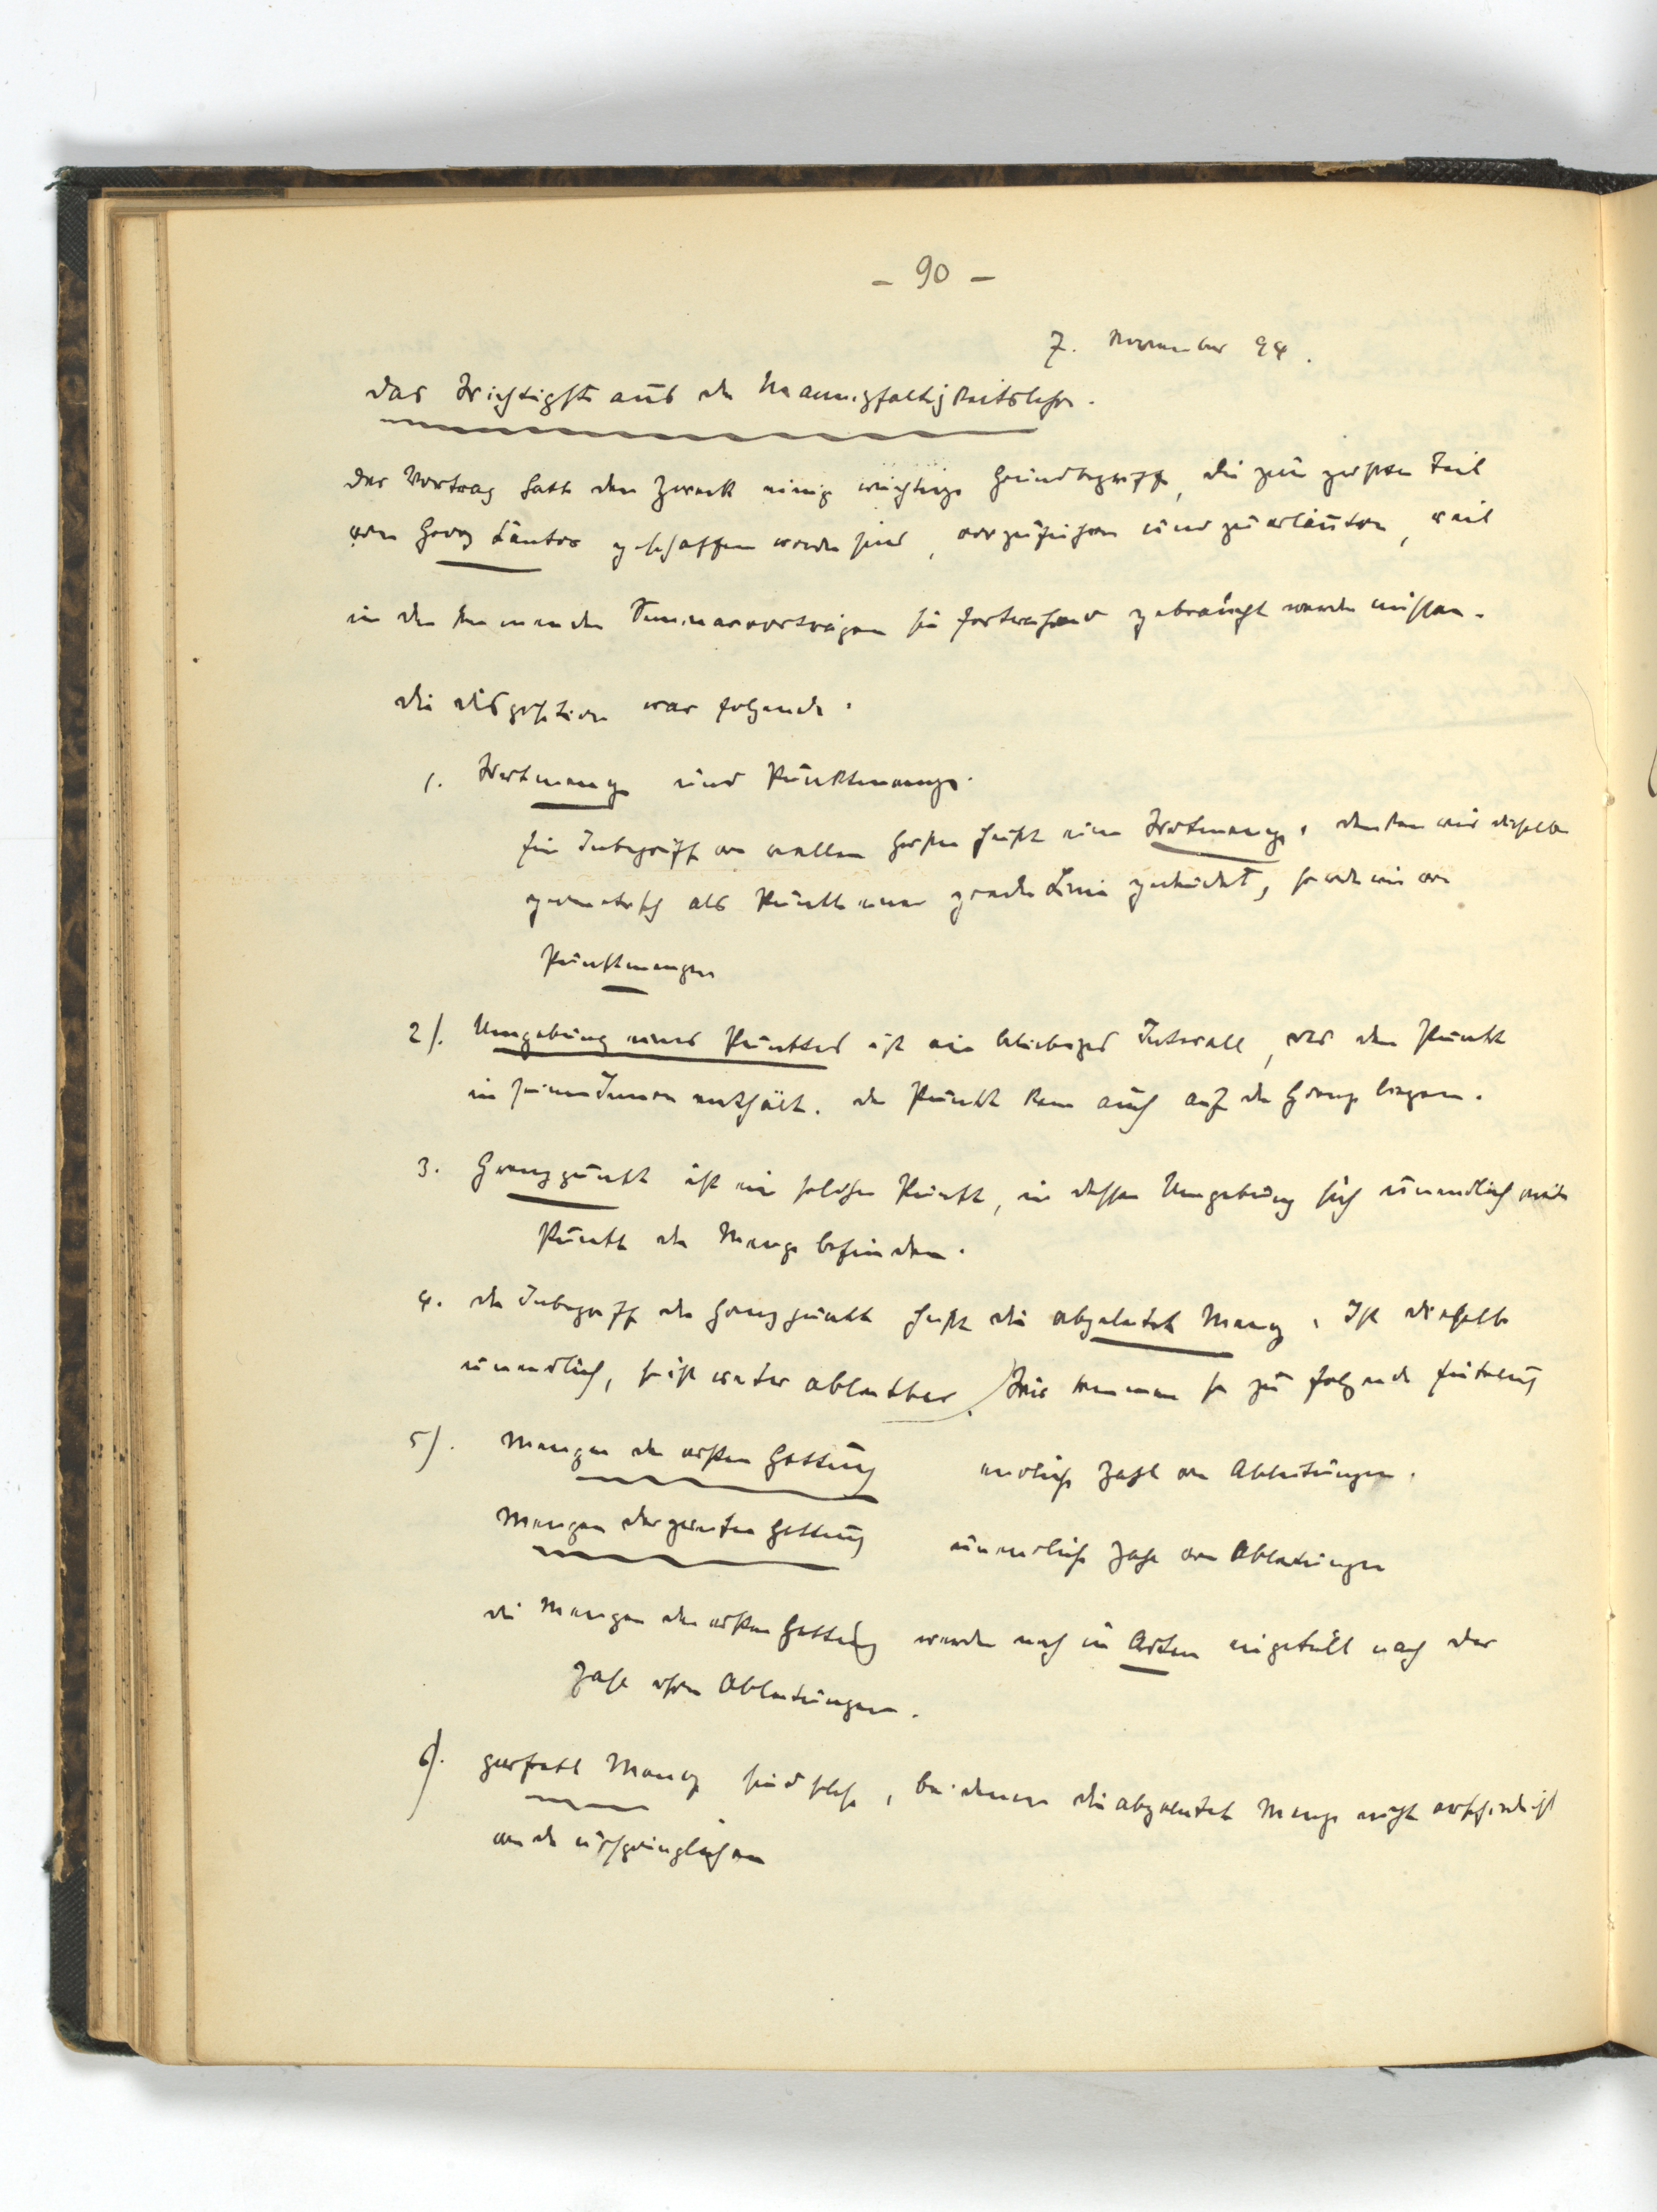 - 90 -
7. November 94.
Das Wichtigste aus der Mannigfaltigkeitslehre.
Der Vortrag hatte den Zweck einige wichtige Grundbegriffe, die zum grössten Teil
von Georg Cantor geschaffen worden sind, vorzuführen und zu erläutern, weil
in den kommenden Seminarvorträgen sie fortwährend gebraucht werden müssen.
Die Disposition war folgende.
1. Wertmenge und Punktmenge.
Ein Inbegriff von reellen Grössen heisst eine Wertmenge. Denken wir dieselben
geometrisch als Punkte einer geraden Linie gedeutet, so reden wir von
Punktmengen
2). Umgebung eines Punktes ist ein beliebiges Intervall, das den Punkt
in seinem Innern enthält. Der Punkt kann auch auf der Grenze liegen.
3. Grenzpunkt ist ein solcher Punkt, in dessen Umgebung sich unendlich viele
Punkte der Menge befinden.
4. Der Inbegriff der Grenzpunkte heisst die abgeleitete Menge. Ist dieselbe
unendlich, so ist weiter ableitbar. Wir kommen so zu folgender Einteilung
5). Mengen der ersten Gattung endliche Zahl von Ableitungen.
Mengen der zweiten Gattung unendliche Zahl von Ableitungen
Die Mengen der ersten Gattung werden noch in Arten eingeteilt nach der
Zahl ihrer Ableitungen.
6). perfekte Menge sind solche, bei denen die abgeleitete Menge nicht verschieden ist
von der ursprünglichen